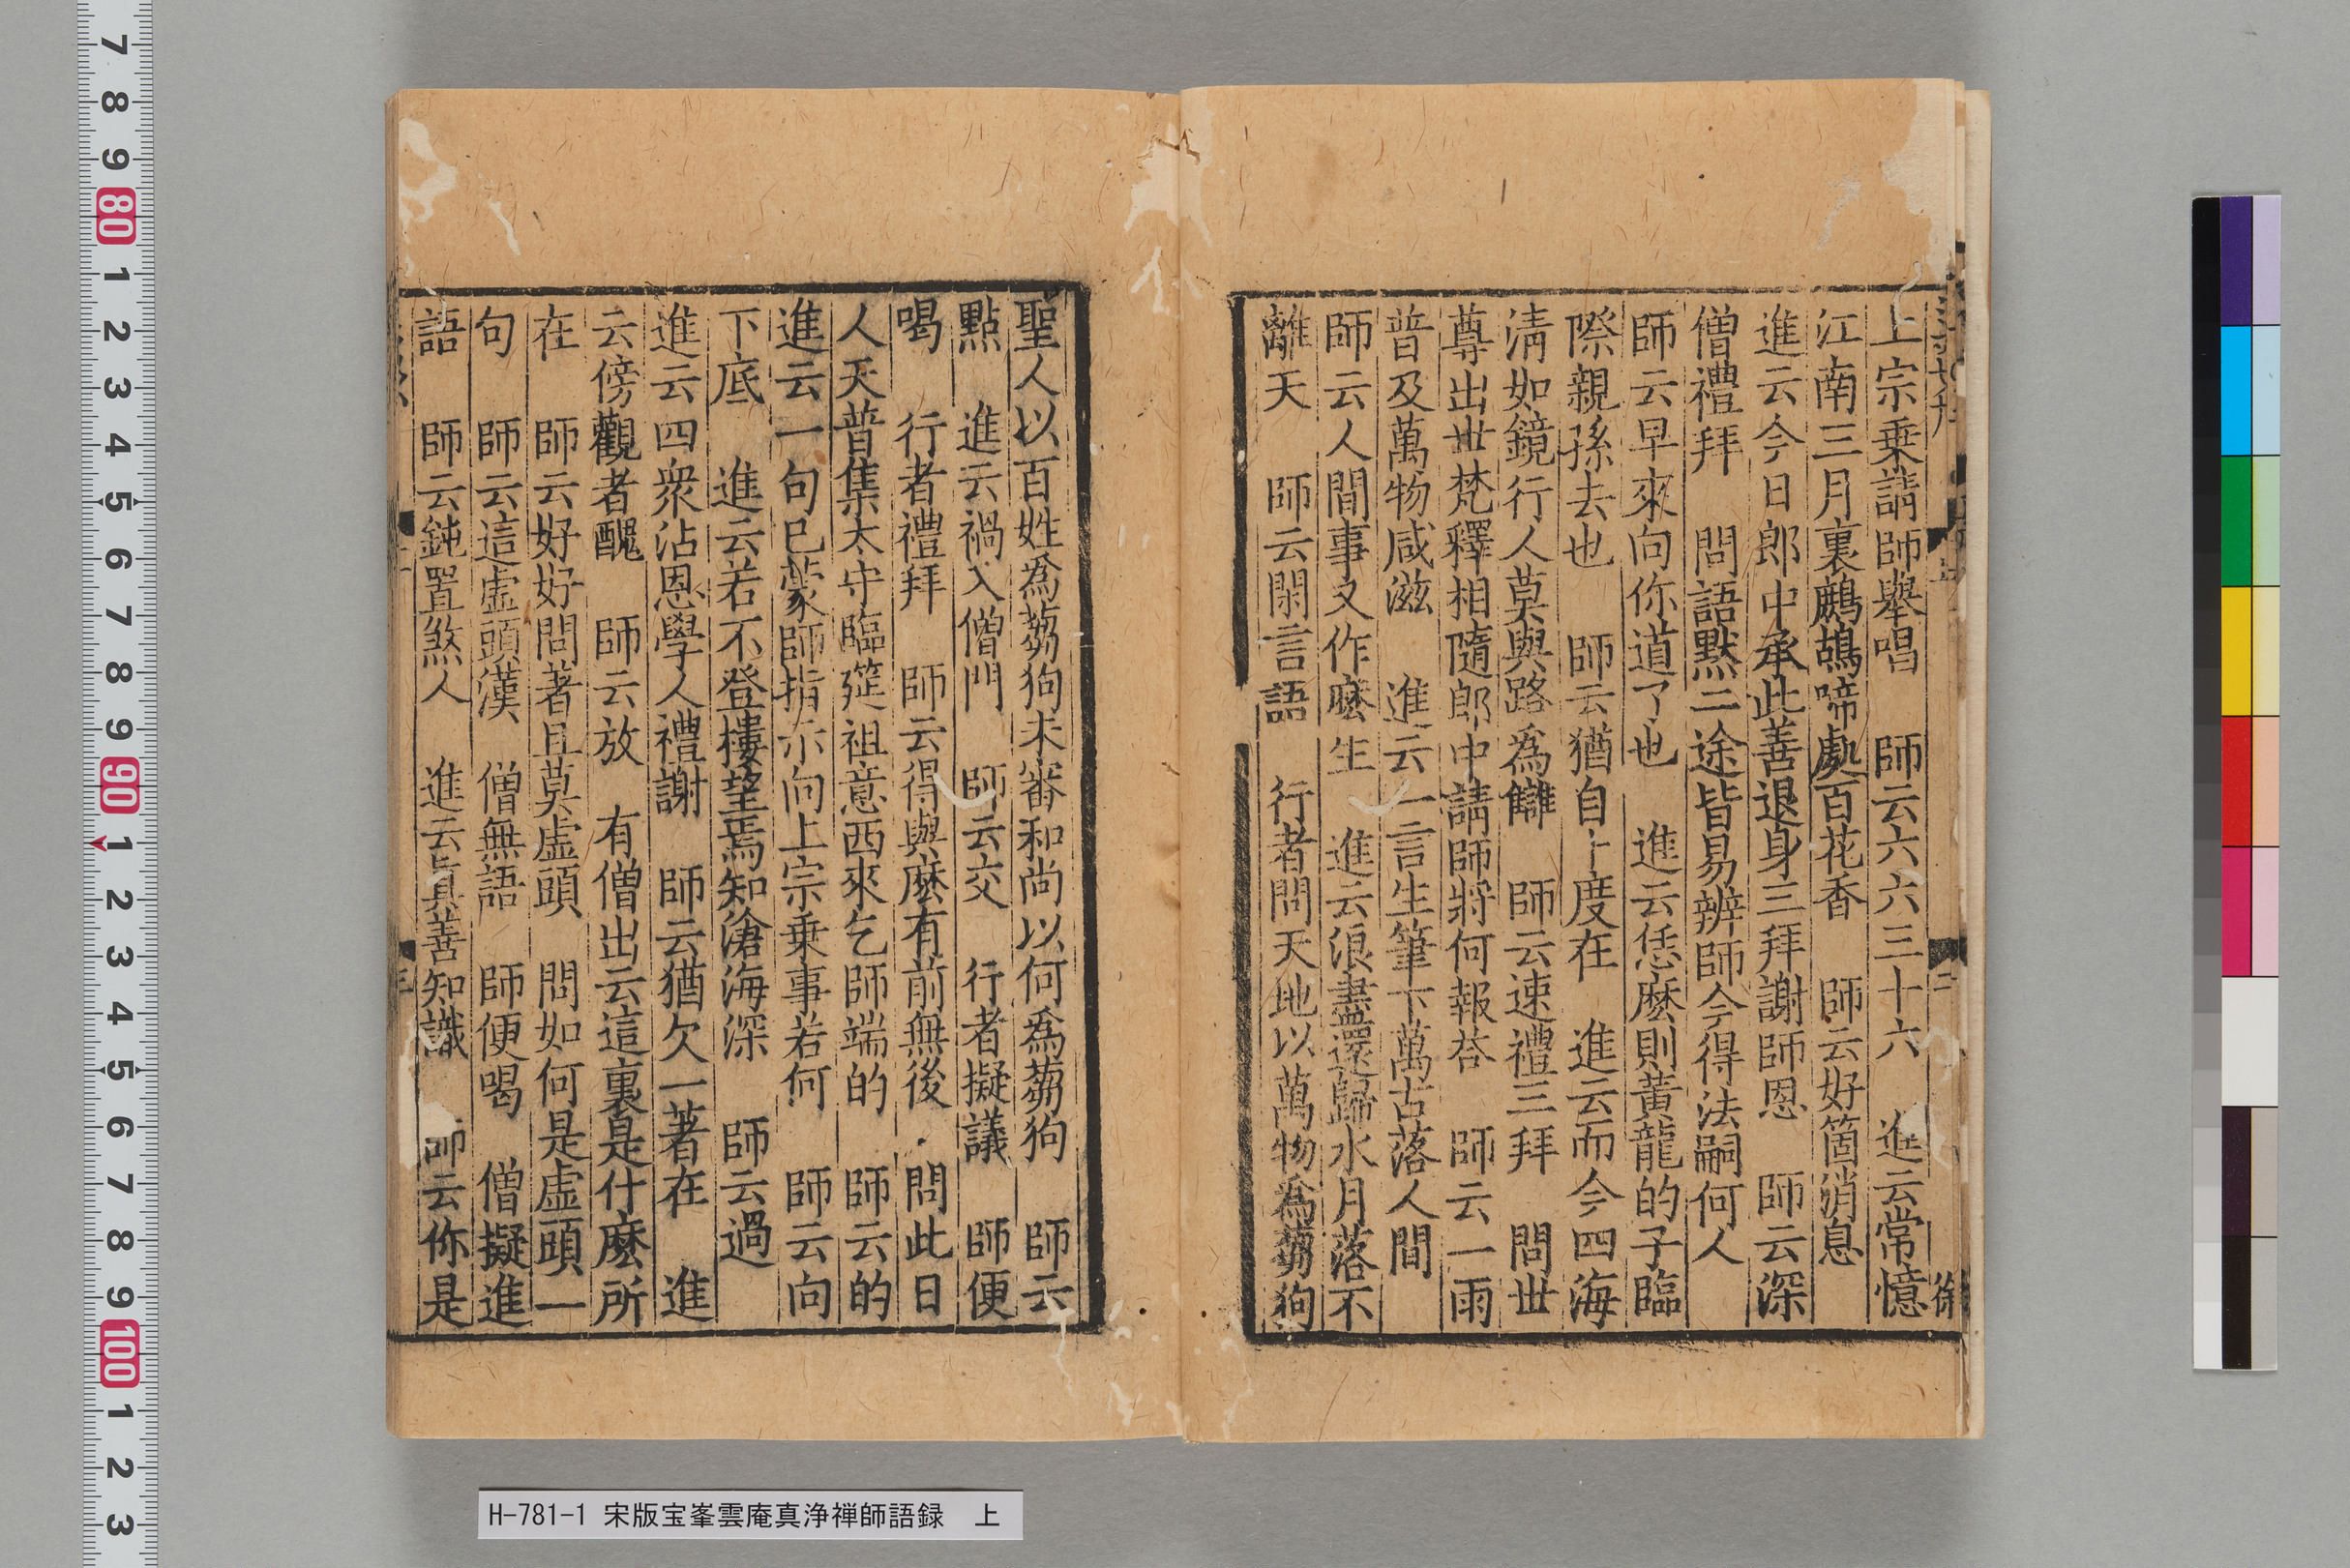 上宗乗請師舉唱　師云六六三十六　進云常憶
江南三月裏鷓鴣啼處百花香　師云好箇消息
進云今日郎中承此善退身三拜謝師恩　師云深
僧禮拜　問語黙二途皆易辨師今得法嗣何人
師云早來向你道了也　進云恁麽則黃龍的子臨
際親孫去也　師云猶自十度在　進云而今四海
清如鏡行人莫與路爲讎　師云速禮三拜　問世
尊出世梵釋相隨郎中請師將何報荅　師云一雨
普及萬物咸滋　進云一言生筆下萬古落人間
師云人間事又作麽生　進云浪盡還歸水月落不
離天　師云閑言語　行者問天地以萬物爲蒭狗
徐
聖人以百姓爲蒭狗未審和尚以何爲蒭狗　師云
點　進云禍入僧門　師云交　行者擬議　師便
喝　行者禮拜　師云得與麽有前無後　問此日
人天普集太守臨筵祖意西來乞師端的　師云的
進云一句已蒙師指示向上宗乗事若何　師云向
下底　進云若不登樓望焉知滄海深　師云過
進云四衆沾恩學人禮謝　師云猶欠一著在　進
云傍觀者醜　師云放　有僧出云這裏是什麽所
在　師云好好問著且莫虛頭　問如何是虛頭一
句　師云這虛頭漢　僧無語　師便喝　僧擬進
語　師云鈍置煞人　進云真善知識　師云你是
7
8
9
80
1
2
3
4
5
6
7
8
9
90
1
2
3
4
5
6
7
8
9
100
1
2
3
H-781-1 宋版宝峯雲庵真浄禅師語録　上